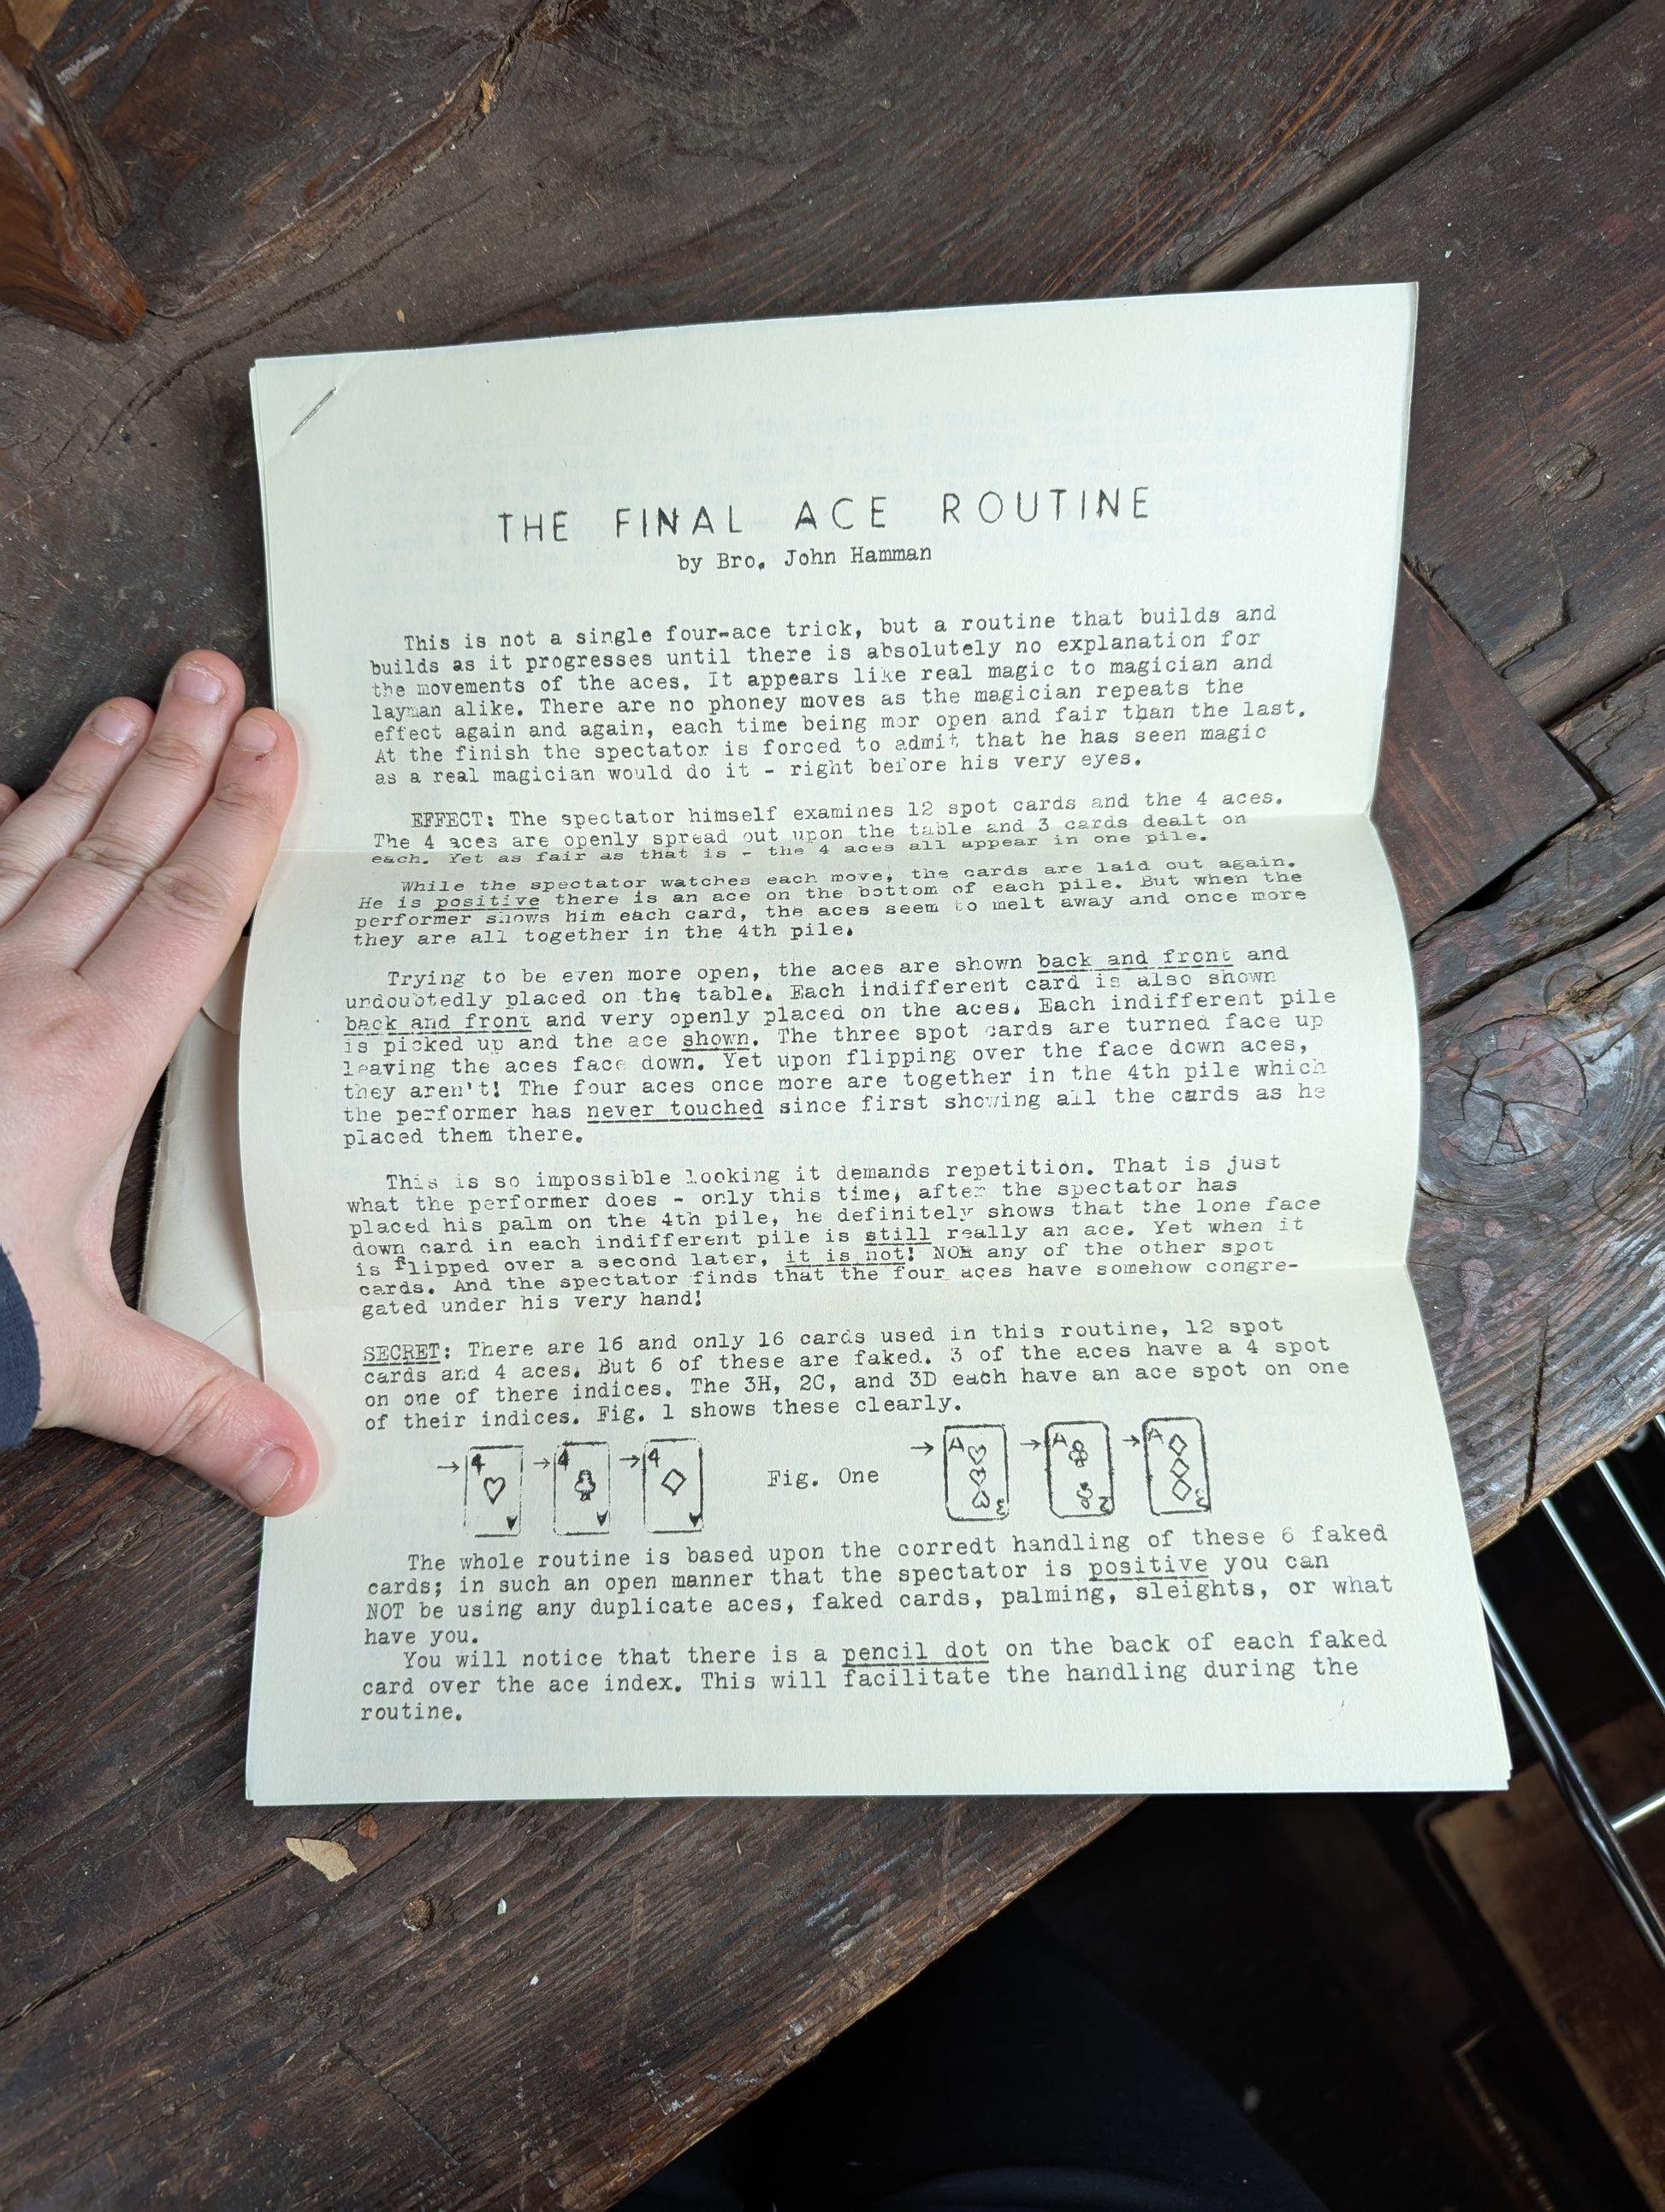 THE FINAL ACE ROUTINE
by Bro. John Hamman
This is not a single four-ace trick, but a routine that builds and
builds as it progresses until there is absolutely no explanation for
the movements of the aces. It appears like real magic to magician and
layman alike. There are no phoney moves as the magician repeats the
effect again and again, each time being mor open and fair than the last.
At the finish the spectator is forced to admit that he has seen magic
as a real magician would do it - right before his very eyes.
EFFECT: The spectator himself examines 12 spot cards and the 4 aces.
The 4 aces are openly spread out upon the table and 3 cards dealt on
each. Yet as fair as that is - the 4 aces all appear in one pile.
While the spectator watches each move, the cards are laid out again.
He is positive there is an ace on the bottom of each pile. But when the
performer shows him each card, the aces seem to melt away and once more
they are all together in the 4th pile.
Trying to be even more open, the aces are shown back and front and
undoubtedly placed on the table. Each indifferent card is also shown
back and front and very openly placed on the aces. Each indifferent pile
is picked up and the ace shown. The three spot cards are turned face up
leaving the aces face down. Yet upon flipping over the face down aces,
they aren't! The four aces once more are together in the 4th pile which
the performer has never touched since first showing all the cards as he
placed them there.
This is so impossible looking it demands repetition. That is just
what the performer does - only this time, after the spectator has
placed his palm on the 4th pile, he definitely shows that the lone face
down card in each indifferent pile is still really an ace. Yet when it
is flipped over a second later, it is not! NOR any of the other spot
cards. And the spectator finds that the four aces have somehow congre-
gated under his very hand!
SECRET: There are 16 and only 16 cards used in this routine, 12 spot
cards and 4 aces. But 6 of these are faked. 3 of the aces have a 4 spot
on one of there indices. The 3H, 2C, and 3D each have an ace spot on one
of their indices. Fig. 1 shows these clearly.
4 A 4 A 4 A Fig. One A 3 A 2 A 3
The whole routine is based upon the corredt handling of these 6 faked
cards; in such an open manner that the spectator is positive you can
NOT be using any duplicate aces, faked cards, palming, sleights, or what
have you.
You will notice that there is a pencil dot on the back of each faked
card over the ace index. This will facilitate the handling during the
routine.